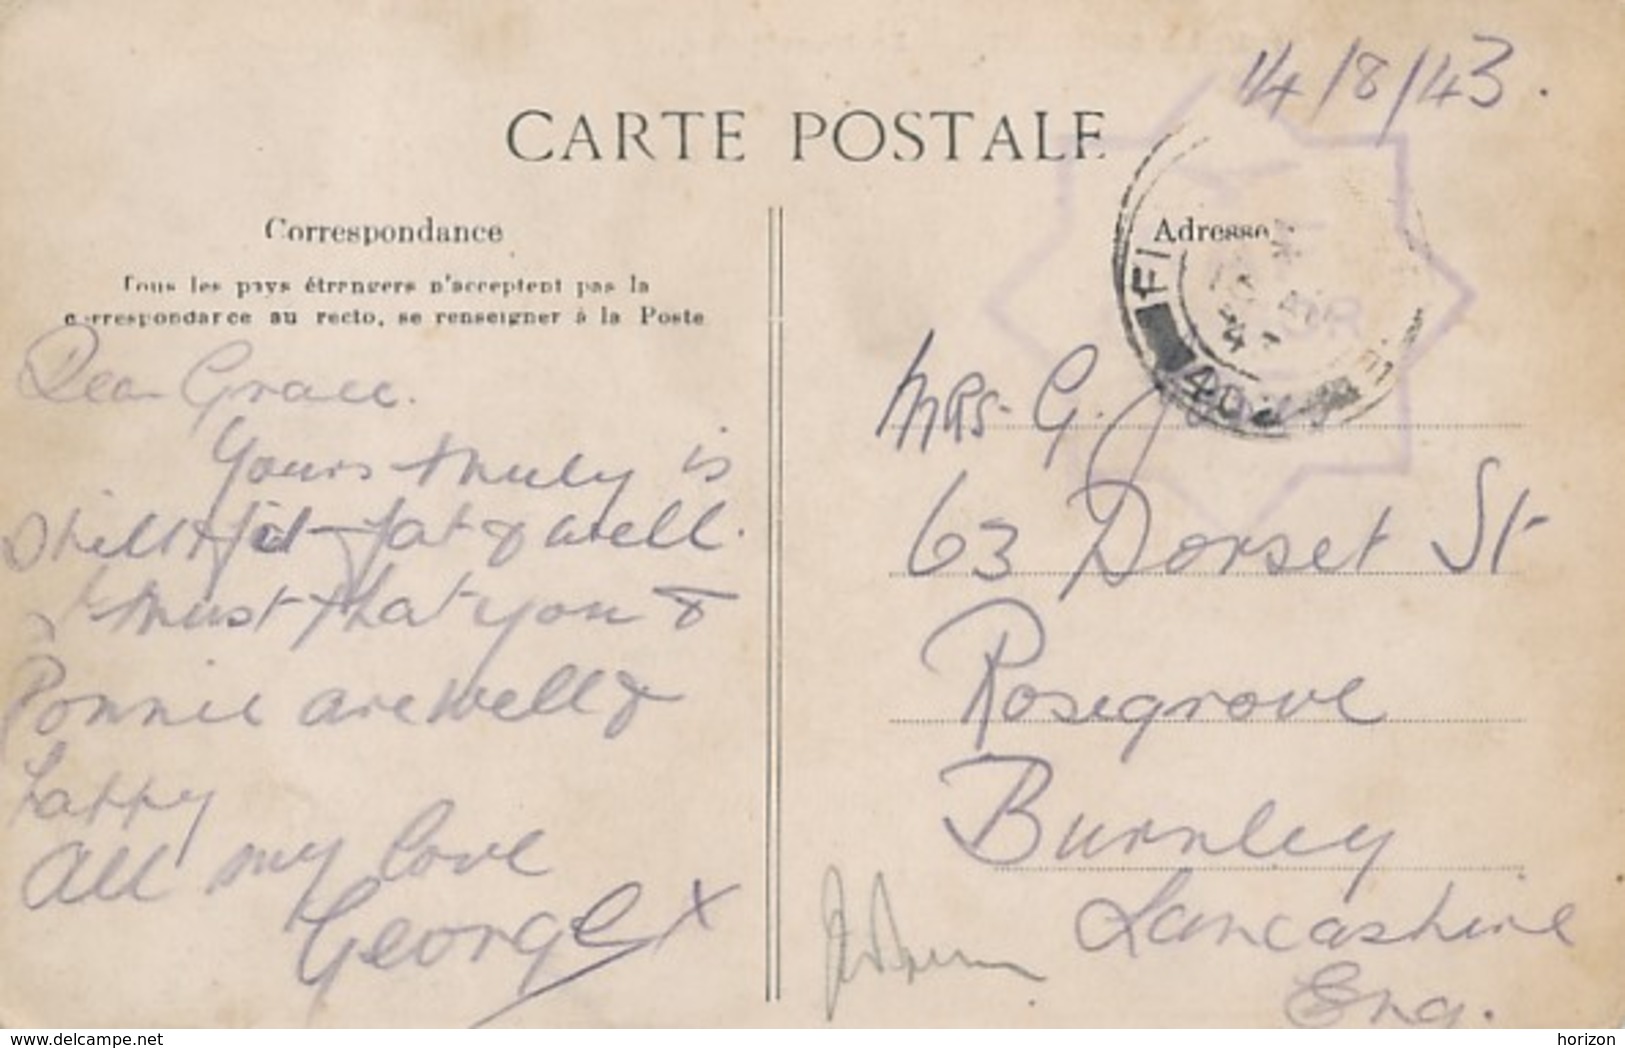 14/8/43.
CARTE POSTALE
Correspondance
Tous les pays étrangers n'acceptent pas la
correspondance au recto, se renseigner à la Poste
Adresse
Dear Grace.
Yours truly is
still fit fat & well.
I trust that you &
Ronnie are well &
happy
All my love
George x
Mrs. G.
63 Dorset St
Rosegrove
Burnley
Lancashire
Eng.
FI
40
www.delcampe.net
horizon